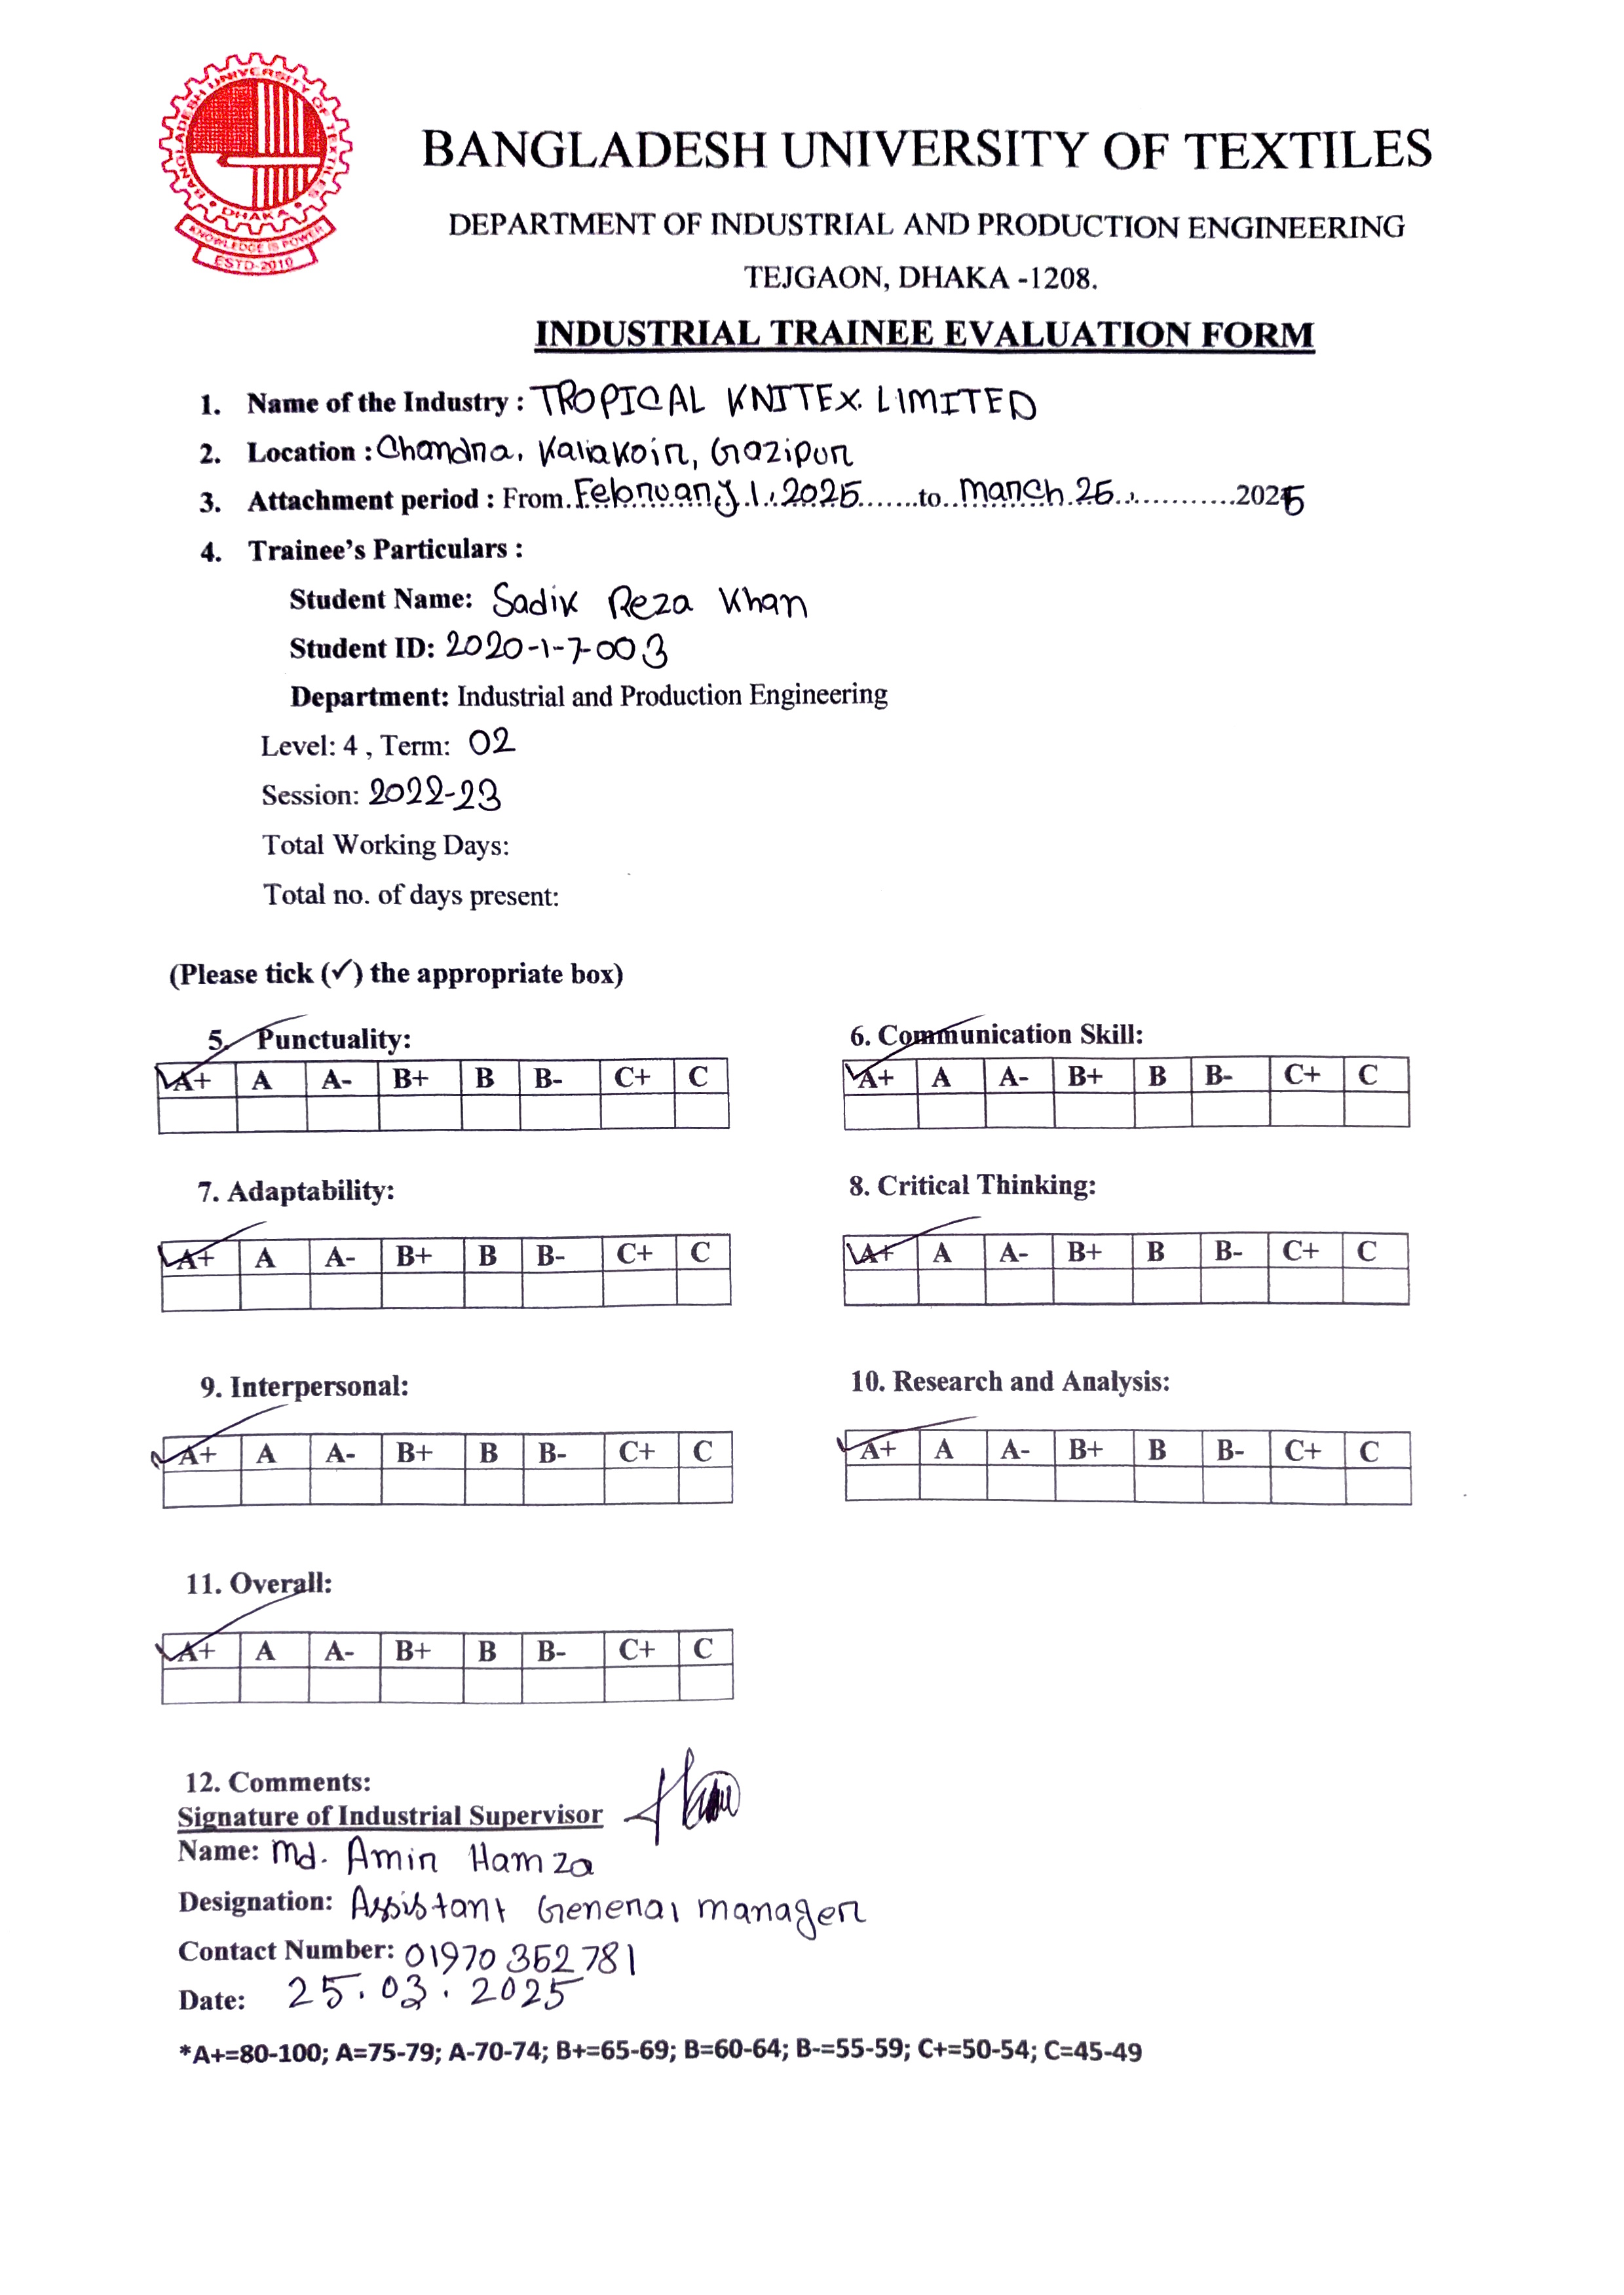 BANGLADESH UNIVERSITY OF TEXTILES
DHAKA
KNOWLEDGE IS POWER
ESTD-2010
BANGLADESH UNIVERSITY OF TEXTILES
DEPARTMENT OF INDUSTRIAL AND PRODUCTION ENGINEERING
TEJGAON, DHAKA -1208.
INDUSTRIAL TRAINEE EVALUATION FORM
1. Name of the Industry : TROPICAL KNITEX LIMITED
2. Location : Chandra, Kaliakoir, Gazipur
3. Attachment period : From February 1, 2025 to March 25, 2025
4. Trainee's Particulars :
Student Name: Sadik Reza Khan
Student ID: 2020-1-7-003
Department: Industrial and Production Engineering
Level: 4 , Term: 02
Session: 2022-23
Total Working Days:
Total no. of days present:
(Please tick (✓) the appropriate box)
5. Punctuality:
✓ A+ A A- B+ B B- C+ C
6. Communication Skill:
✓ A+ A A- B+ B B- C+ C
7. Adaptability:
✓ A+ A A- B+ B B- C+ C
8. Critical Thinking:
✓ A+ A A- B+ B B- C+ C
9. Interpersonal:
✓ A+ A A- B+ B B- C+ C
10. Research and Analysis:
✓ A+ A A- B+ B B- C+ C
11. Overall:
✓ A+ A A- B+ B B- C+ C
12. Comments:
Signature of Industrial Supervisor
Name: Md. Amin Hamza
Designation: Assistant General manager
Contact Number: 01970352781
Date: 25.03.2025
*A+=80-100; A=75-79; A-70-74; B+=65-69; B=60-64; B-=55-59; C+=50-54; C=45-49